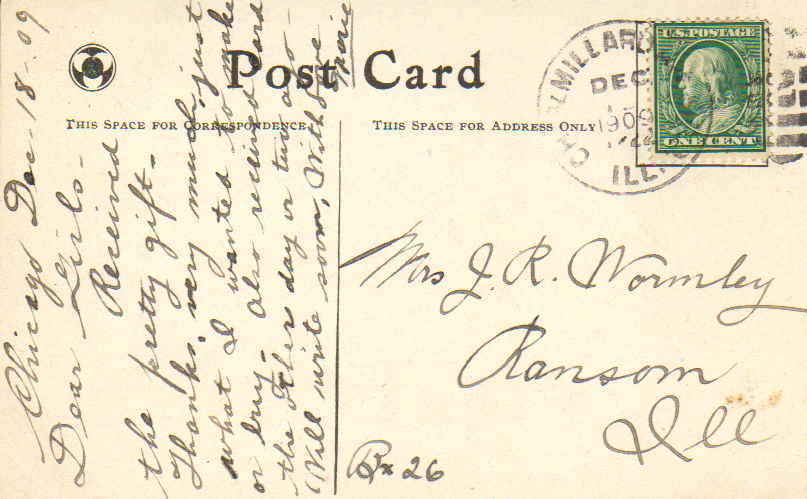 Post Card
THIS SPACE FOR CORRESPONDENCE
THIS SPACE FOR ADDRESS ONLY
MILLARD
DEC
1909
ILL
U.S. POSTAGE
ONE CENT
Chicago Dec. 18-09
Dear Girls-
Received
the pretty gift.
Thanks very much just
what I wanted to make
or buy. Also received card
the other day or two ago-
Will write soon, With love
Mrs J. R. Wormley
Ransom
Ill
Bx 26